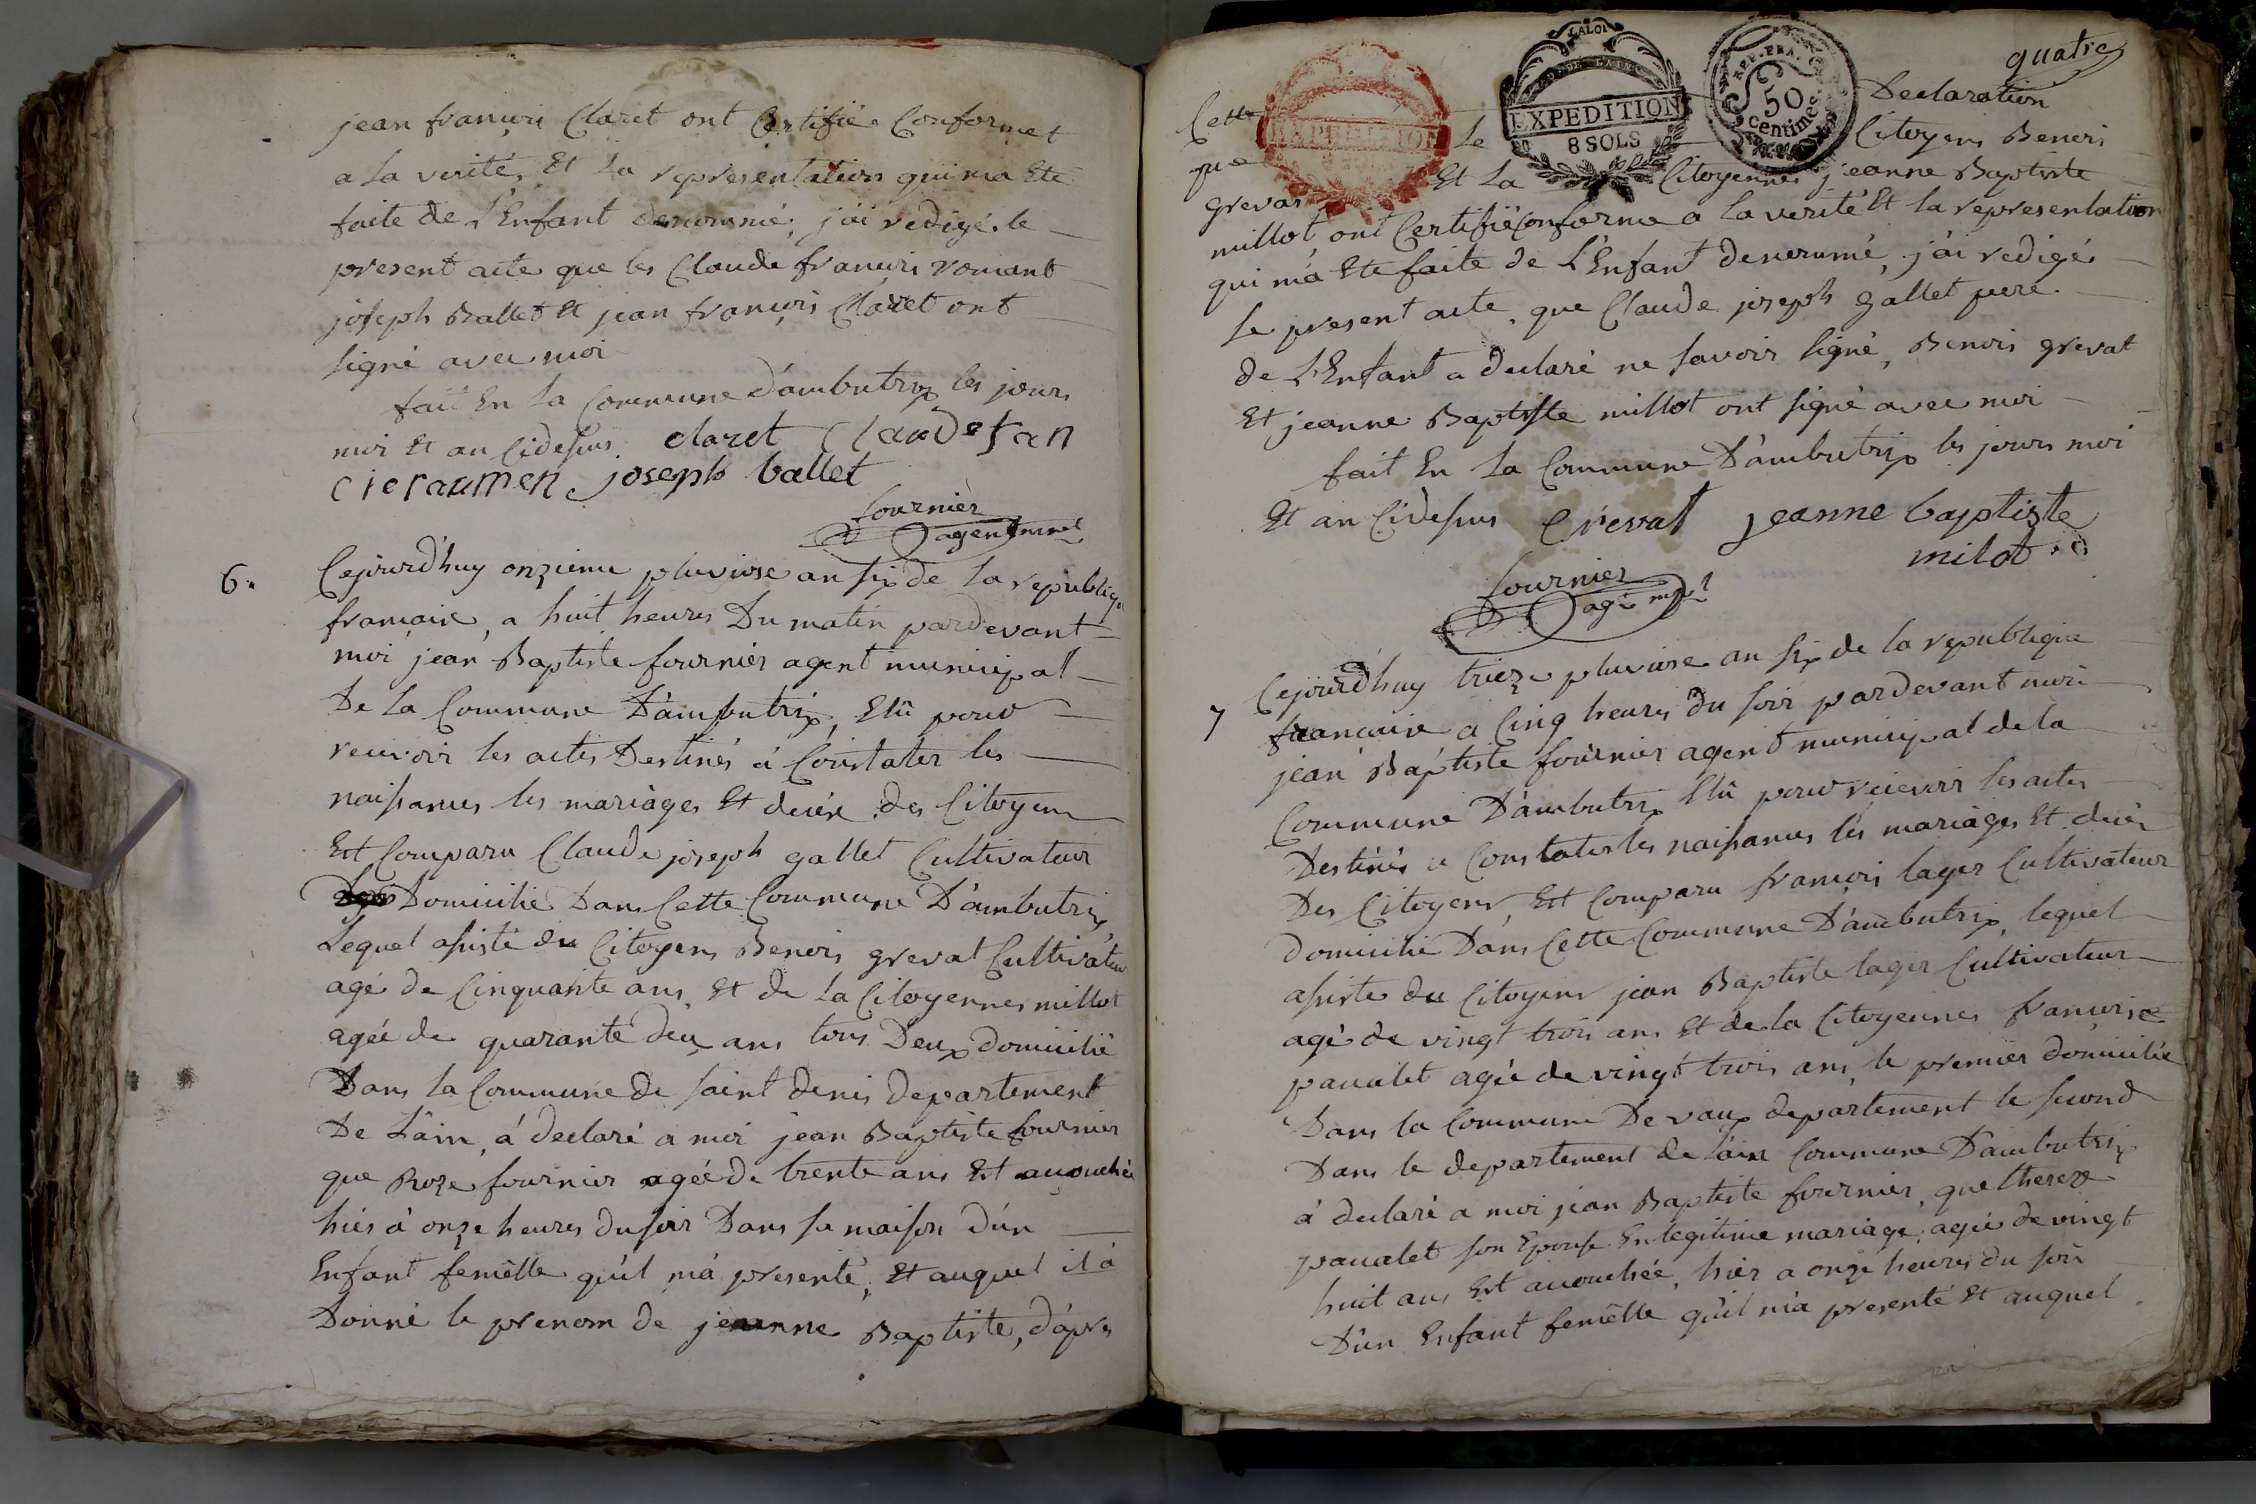 jean françois Claret ont Certifié Conforme
a la verité, Et la representation qui ma Ete
faite de L'Enfant denommé, j'ai redigé le
present acte que les Claude françois romant
joseph Ballet Et jean françois Claret ont
signé avec moi
fait En la Commune d'ambutrix les jours
moi et an Cidessus claret Claude fran
cieraumen joseph ballet
fournier
agent mpal
6.
Cejourd'huy onzieme pluviose an six de la republiq
française, a huit heures Du matin pardevant
moi jean Baptiste fournier agent municipal
De la Commune D'ambutrix, Elû pour
recevoir les actes Destinés à Constater les
naissances les mariages Et decès des Citoyens
Est Comparu Claude joseph gallet Cultivateur
Domicilié Dans Cette Commune D'ambutrix
Lequel assisté du Citoyens Benois grevat Cultivateur
agé de Cinquante ans Et de La Citoyennes millot
agée de quarante deux ans tous Deux domicilié
Dans la Commune de saint denis departement
De L'ain, à declaré a moi jean Baptiste fournier
que Roze fournier agée De trente ans Est accouchée
hiés à onze heures du soir Dans sa maison d'un
Enfant femelle qu'il m'a presenté, Et auquel il à
Donné le prenom de jeanne Baptiste, d'après
quatre
LA LOI
EXPEDITION
8 SOLS
REP. FRA.
50
centimes
EXPEDITION
Cette Declaration
que Le Citoyens Benois
grevat Et La Citoyennes jeanne Baptiste
millot, ont Certifié Conforme a la verité Et la representation
qui m'a Ete faite de L'Enfant denommé, j'ai redigé
le present acte, que Claude joseph gallet pere
de L'Enfant a declaré ne savoir signé, Benois grevat
Et jeanne Baptiste millot ont signé avec moi
fait En la Commune D'ambutrix les jours moi
Et an Cidessus Crevat jeanne baptiste
milot
fournier
agt mpal
7
Cejourd'huy trieze pluviose an six de la republique
française a Cinq heures du soir pardevant moi
jean Baptiste fournier agent municipal de la
Commune D'ambutrix Elû pour recevoir les actes
Destinés a Constater les naissances les mariages Et decès
Des Citoyens, Est Comparu françois lager Cultivateur
domicilié Dans Cette Commune D'ambutrix, lequel
assisté du Citoyens jean Baptiste lager Cultivateur
agé de vingt trois ans Et de la Citoyennes françoise
pavalet agée de vingt trois ans, le premier domiciliée
Dans la Commune De vaux departement le second
Dans le departement de l'ain Commune D'ambutrix
à declaré a moi jean Baptiste fournier, que therese
pavalet son Epouse En legitime mariage, agée de vingt
huit ans Est accouchée, hier a onze heures du soir
D'un Enfant femelle qu'il m'a presenté Et auquel